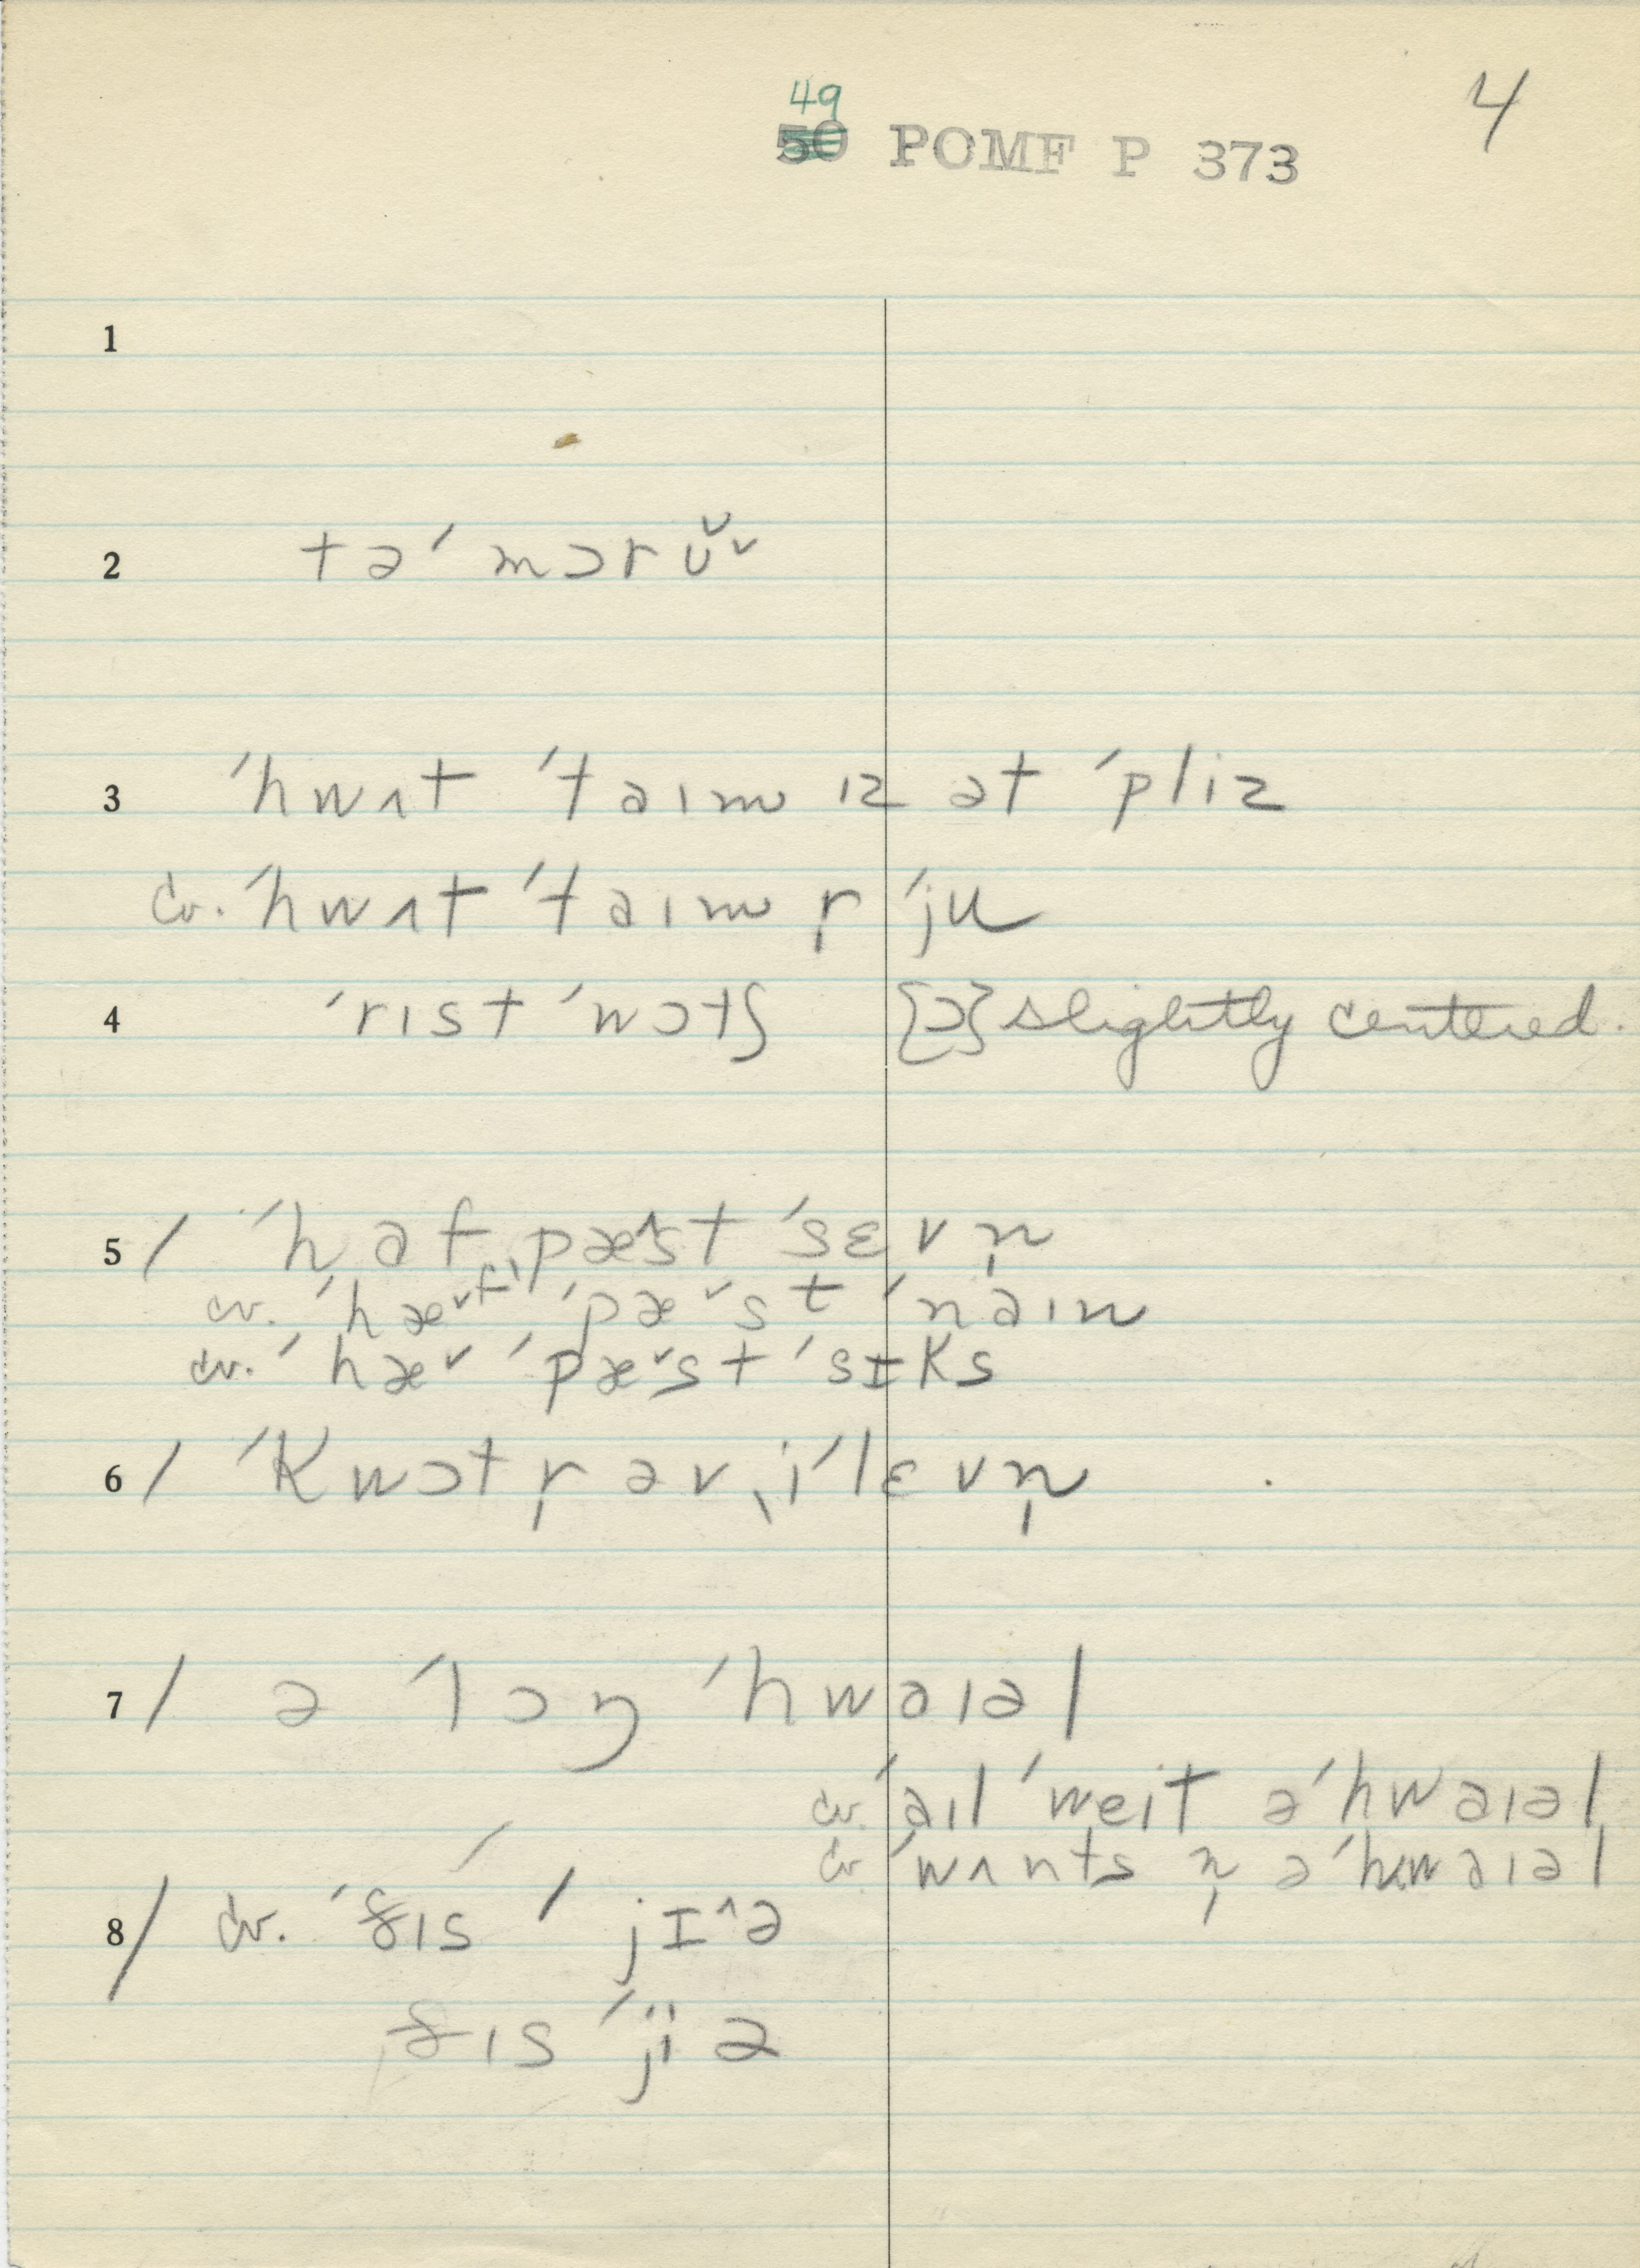 49
50 POMF P 373
4
1
2 tə ˈmɔrʊ̌ˇ
3 ˈhwʌt ˈtaɪm ɪz ət ˈpliz
cv. ˈhwʌt ˈtaɪm r̩ ˈju
4 ˈrɪst ˈwɔtʃ [ɔ] slightly centered.
5 / ˈhaf ˌpæ^st ˈsɛvn̩
cv. ˈhæˇf ˈpæˇst ˈnaɪn
cv. ˈhæˇ ˈpæˇst ˈsɪks
6 / ˈkwɔtr̩ əv ˌiˈlɛvn̩
7 / ə ˈlɔŋ ˈhwaɪəl
cv. ˈaɪl ˈweɪt əˈhwaɪəl
cv. ˈwʌnts n̩ əˈhwaɪəl
8 / cv. ˈðɪs ˈjɪ^ə
ðɪs ˈjiə